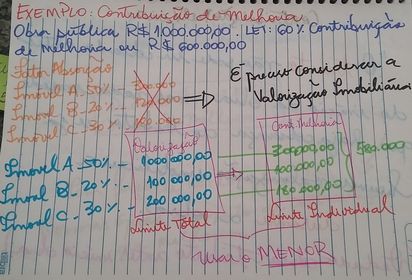 EXEMPLO: Contribuição de Melhoria
Obra pública R$ 1.000.000,00. LEI: 60% Contribuição
de melhoria ou R$ 600.000,00
Fator Absorção
Imóvel A - 50% - 300.000
Imóvel B - 20% - 120.000
Imóvel C - 30% - 180.000
⇒ É preciso considerar a
Valorização Imobiliária
Valorização
Contr. Melhoria
Imóvel A - 50% - 1000 000,00 300.000,00
Imóvel B - 20% - 100 000,00 ⇒ 100.000,00 } 580.000
Imóvel C - 30% - 200 000,00 180.000,00
Limite Total Limite Individual
Usar o MENOR